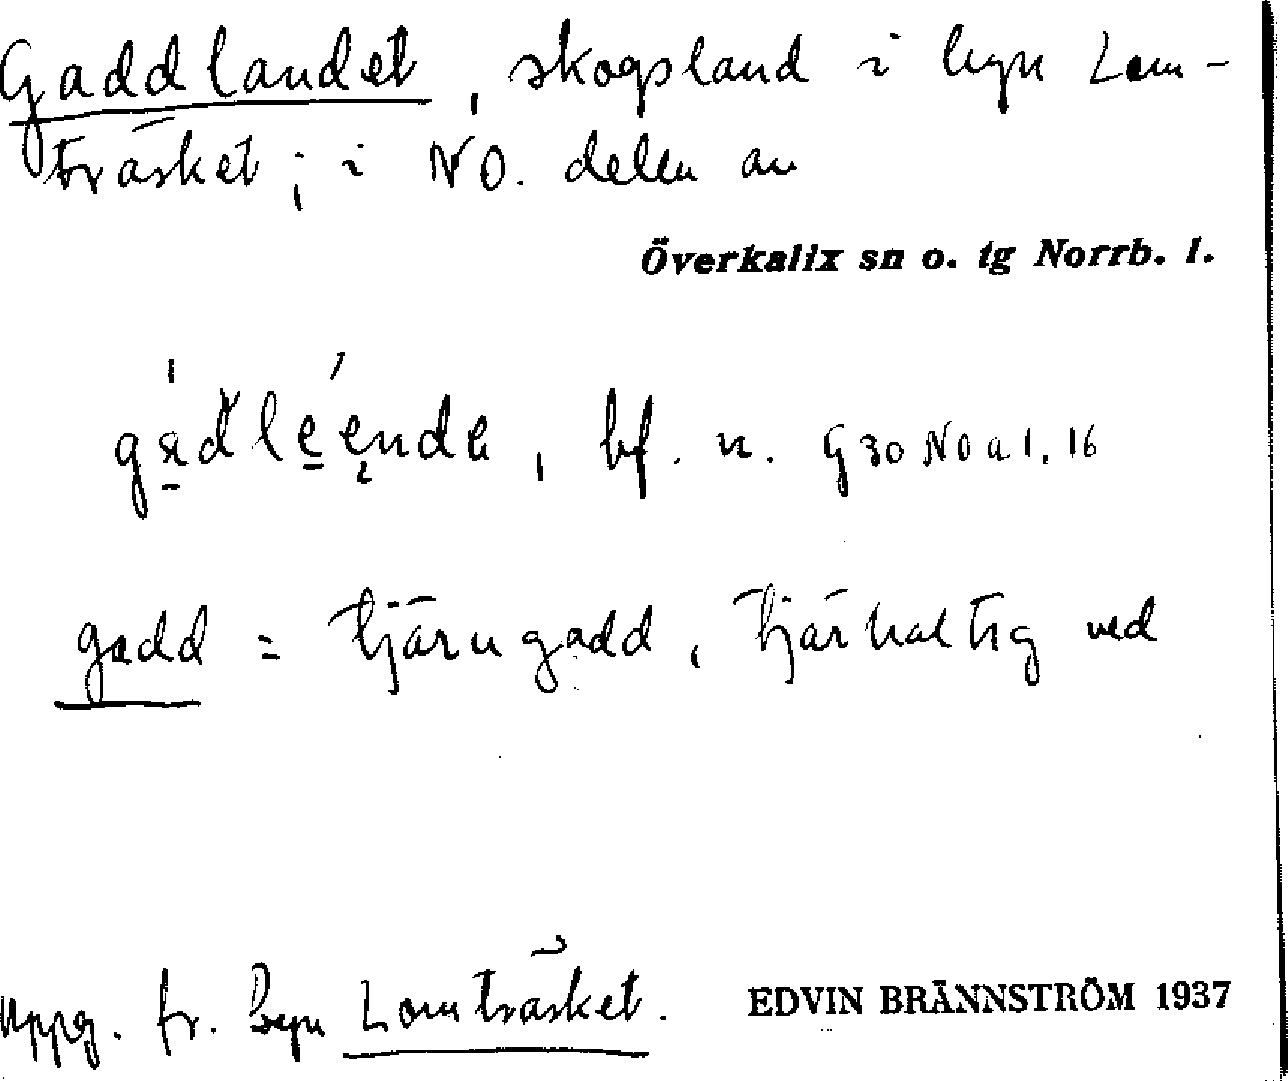 Gaddlandet, skogsland i byn Lom-
träsket; i NO. delen av
Överkalix sn o. tg Norrb. l.
bf. n. G30 NO a 1. 16
gadd = tjärugadd, tjärhaltig ved
Uppg. fr. byn Lomträsket.
EDVIN BRÄNNSTRÖM 1937